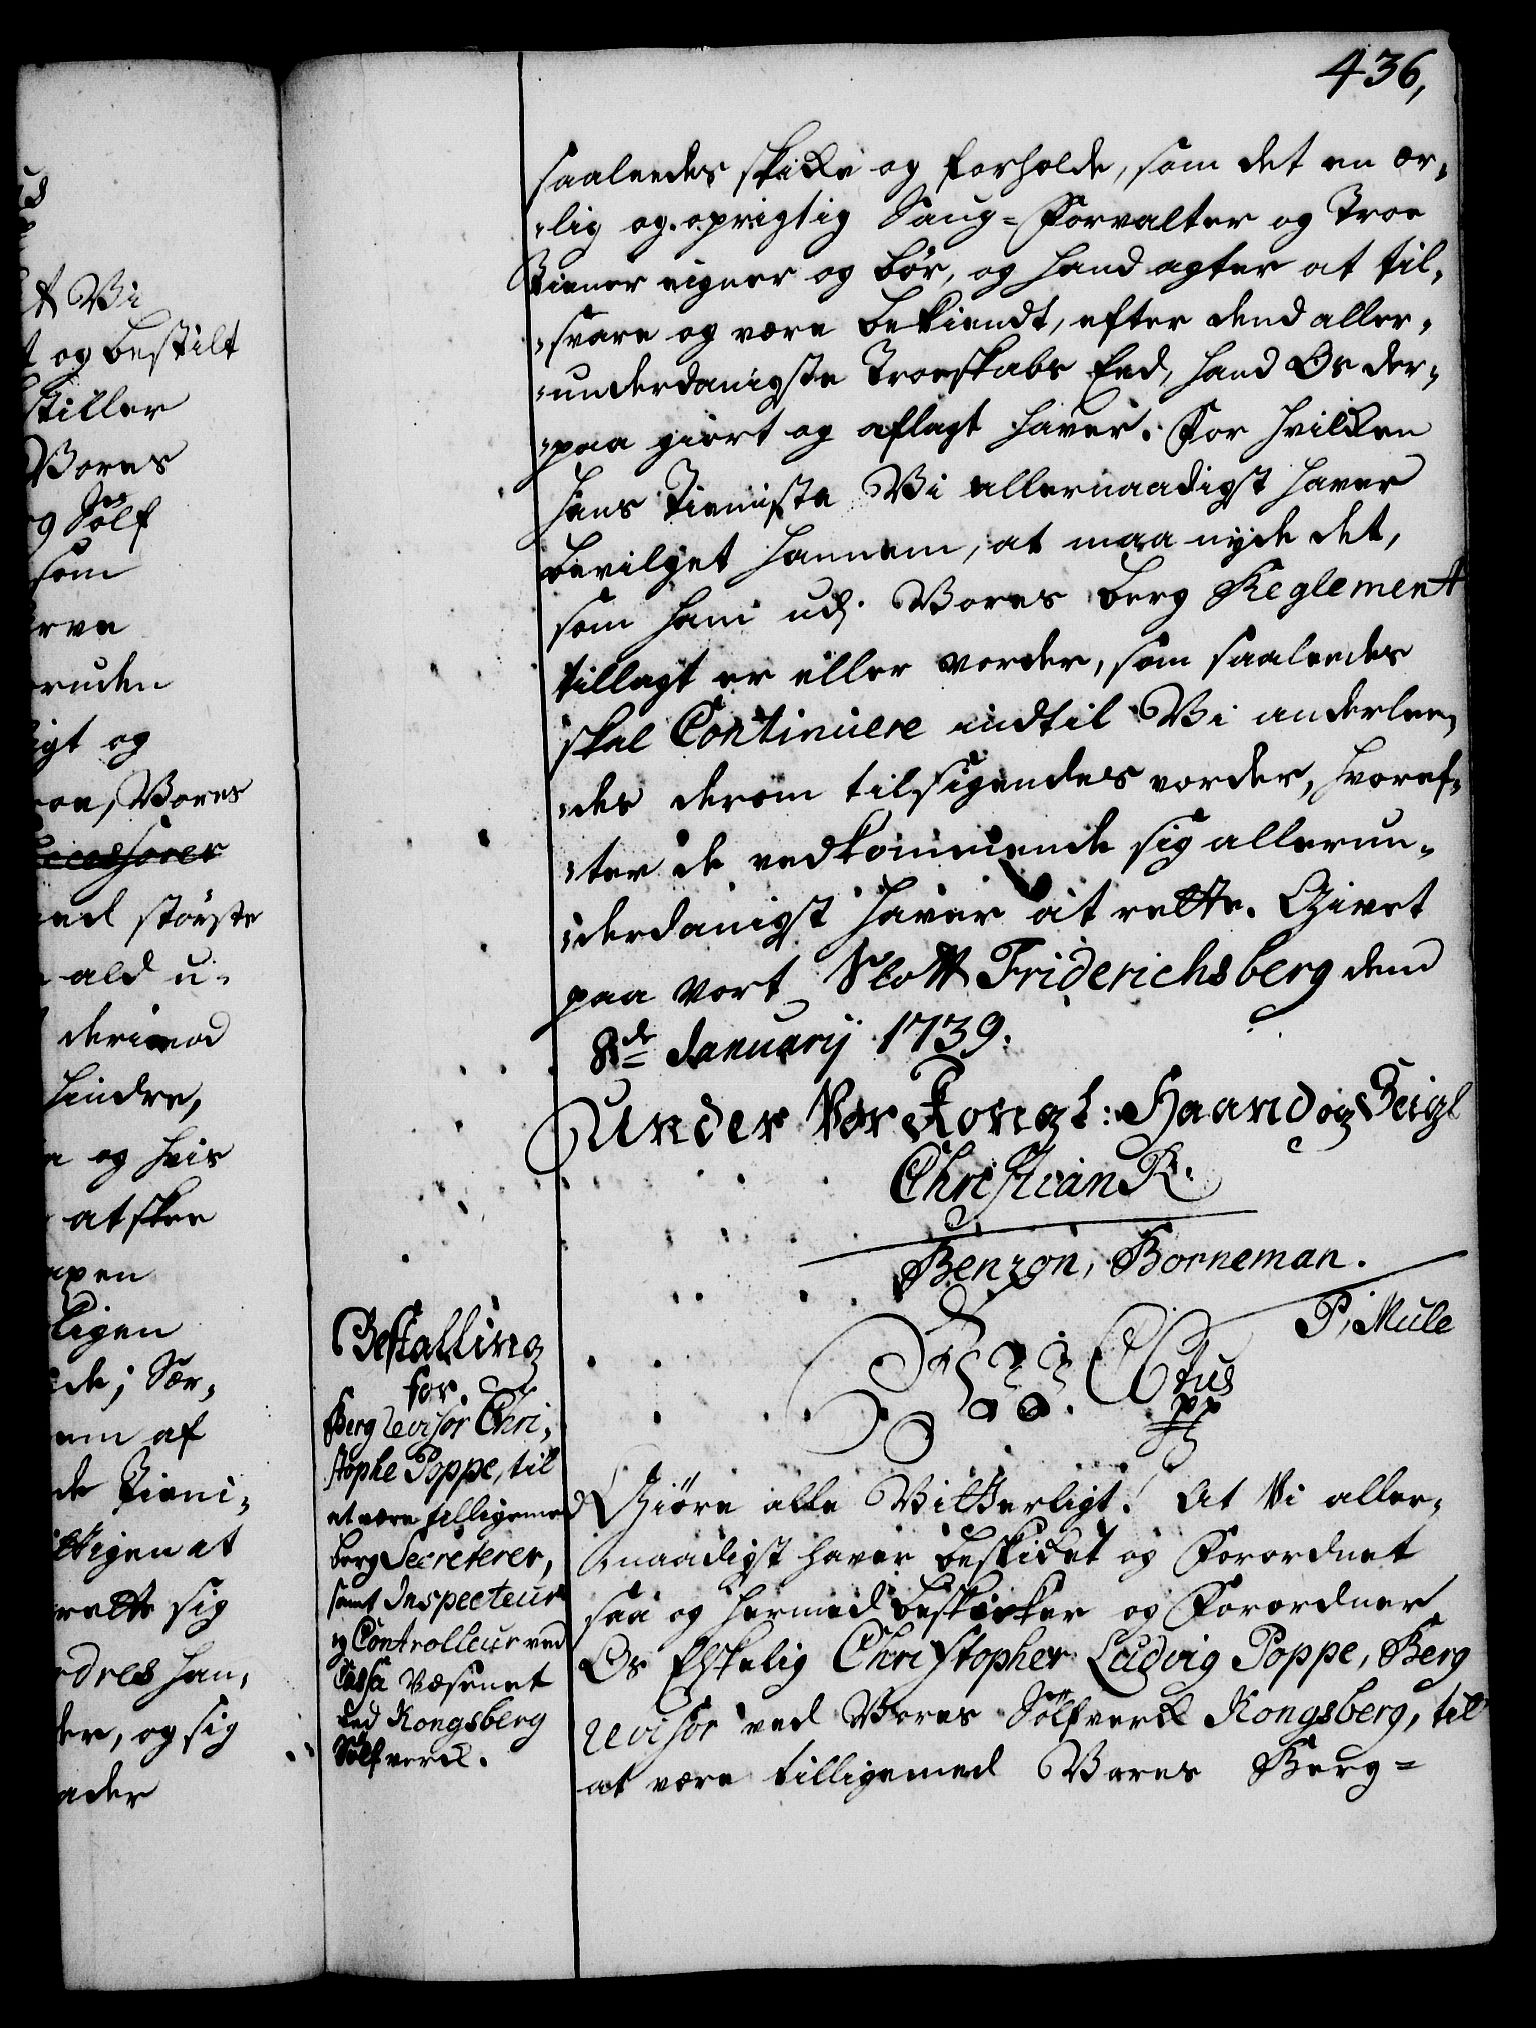 436,
saaleedes skikke og forholde, som det en ær-
-lig og oprigtig Saug-Forvalter og Troe
Tiener eigner og bør, og hand agter at til-
-svare og være bekiendt, efter dend aller-
-underdanigste Troeskabs Eed, hand Os der-
-paa giort og aflagt haver. For hvilken
hans Tieniste Vi allernaadigst haver
bevilget hannem, at maa nyde det,
som ham udj Vores berg Reglement
tillagt er eller vorder, som saaleedes
skal Continuere indtil Vi anderlee-
-des derom tilsigendes vorder, hvoref-
-ter de vedkommende sig allerun-
-derdanigst haver at rette. Givet
paa Vort Slott Friderichsberg dend
8de January 1739.
Under Vor Kongl: Haand og Seigl
Christian R.
Benzon, Borneman.
P, Mule
Bestalling
for
Berg revisor Chri-
stophe Poppe, til
at være tilligemed
berg Secreterer,
samt Inspecteur
og Controlleur ved
Cassa Væsenet
ved Kongsberg
Sølfverk.
Giøre alle Vitterligt! At Vi aller-
-naadigst haver beskiket og Forordnet
saa og hermed beskikker og Forordner
Os Elskelig Christopher Ludvig Poppe, Berg
revisor ved Vores Sølfverk Kongsberg, til
at være tilligemed Vores Berg=
Vi
og bestilt
stiller
Vores
Sølf
som
og
Vores
størte
ald u-
derimod
hindre,
og hvis
at skee
af
sig
og sig